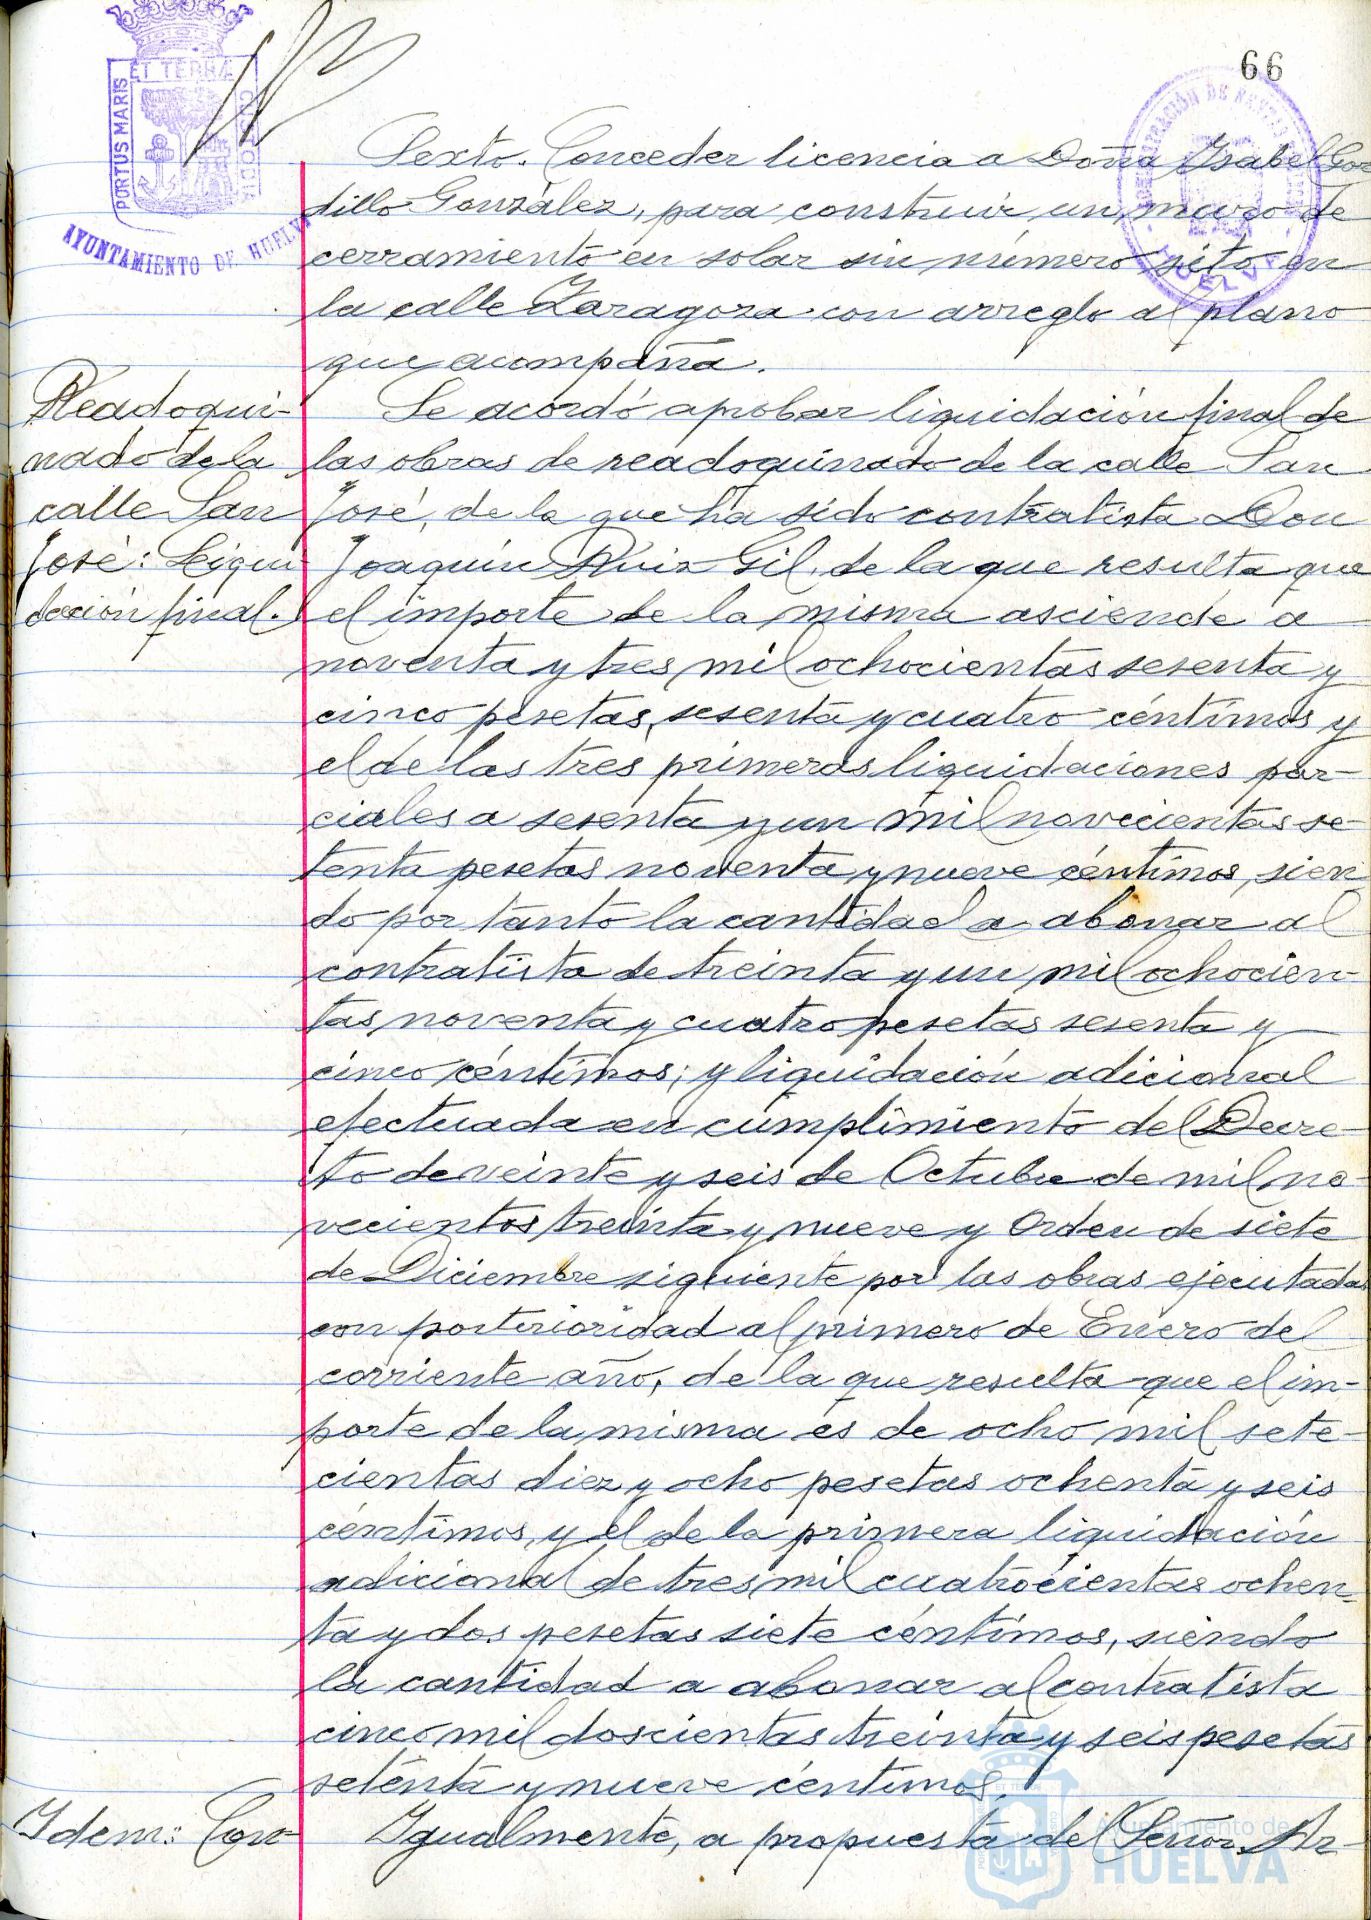 66
ET TERRÆ
PORTUS MARIS
CUSTODIA
AYUNTAMIENTO DE HUELVA
HUELVA
Sexto. Conceder licencia a Doña Ysabel Gor
dillo González, para construir un muro de
cerramiento en solar sin número sito en
la calle Zaragoza con arreglo al plano
que acompaña.
Readoqui-
nado de la
calle San
José: Liqui-
dación final.
Se acordó aprobar liquidación final de
las obras de readoquinado de la calle San
José, de la que ha sido contratista Don
Joaquín Ruiz Gil, de la que resulta que
el importe de la misma asciende a
noventa y tres mil ochocientas sesenta y
cinco pesetas, sesenta y cuatro céntimos y
el de las tres primeras liquidaciones par-
ciales a sesenta y un mil novecientas se-
tenta pesetas noventa y nueve céntimos, sien
do por tanto la cantidad a abonar al
contratista de treinta y un mil ochocien-
tas noventa y cuatro pesetas sesenta y
cinco céntimos; y liquidación adicional
efectuada en cumplimiento del Decre-
to de veinte y seis de Octubre de mil no-
vecientos treinta y nueve y Orden de siete
de Diciembre siguiente por las obras ejecutadas
con posterioridad al primero de Enero del
corriente año, de la que resulta que el im-
porte de la misma es de ocho mil sete-
cientas diez y ocho pesetas ochenta y seis
céntimos, y el de la primera liquidación
adicional de tres mil cuatrocientas ochen-
ta y dos pesetas siete céntimos, siendo
la cantidad a abonar al contratista
cinco mil doscientas treinta y seis pesetas
setenta y nueve céntimos.
Ydem: Con-
Ygualmente, a propuesta del Señor Ar-
Ayuntamiento de
HUELVA